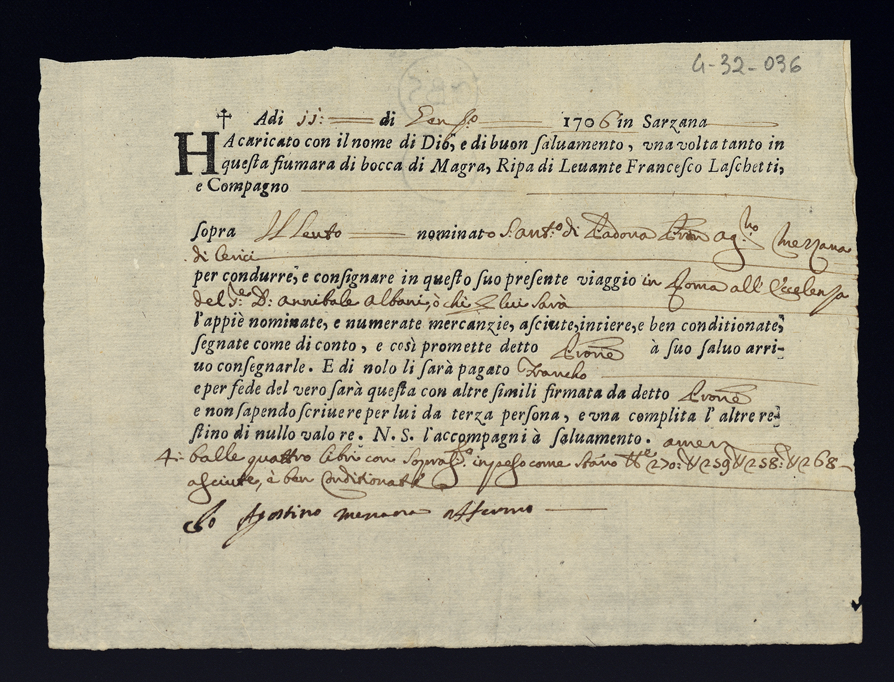 G-32-036
✝ Adi 11: di Gen.ro 1706 in Sarzana
HA caricato con il nome di Dio, e di buon saluamento, vna volta tanto in
questa fiumara di bocca di Magra, Ripa di Leuante Francesco Laschetti,
e Compagno
sopra Il leuto nominato S. Ant.o di Padoua Prone ag.no Mezzana
di lerici
per condurre, e consignare in questo suo presente viaggio in Roma all'Eccelenza
del D. Annibale Albani, ò chi p lui sarà
l'appiè nominate, e numerate mercanzie, asciute, intiere, e ben conditionate,
segnate come di conto, e così promette detto Prone à suo saluo arri-
uo consegnarle. E di nolo li sarà pagato Francho
e per fede del vero sarà questa con altre simili firmata da detto Prone
e non sapendo scriuere per lui da terza persona, e vna complita l'altre re-
stino di nullo valore. N. S. l'accompagni à saluamento. amen
4: balle quattro libri con in peso come 270: 259 258: 268
asciute, è ben Conditionate
Io Agostino Mezzana affermo